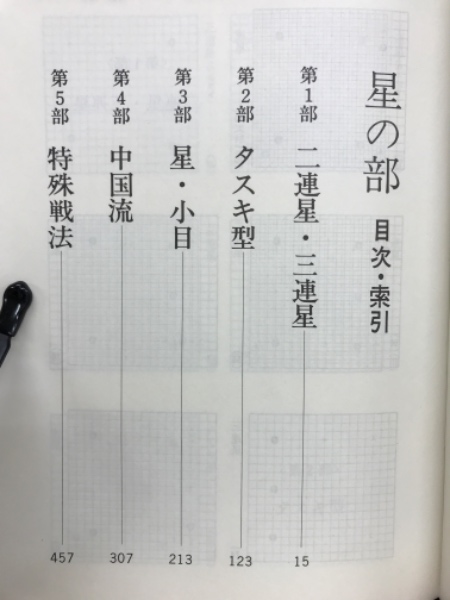 星の部 目次・索引
第1部 二連星・三連星 15
第2部 タスキ型 123
第3部 星・小目 213
第4部 中国流 307
第5部 特殊戦法 457